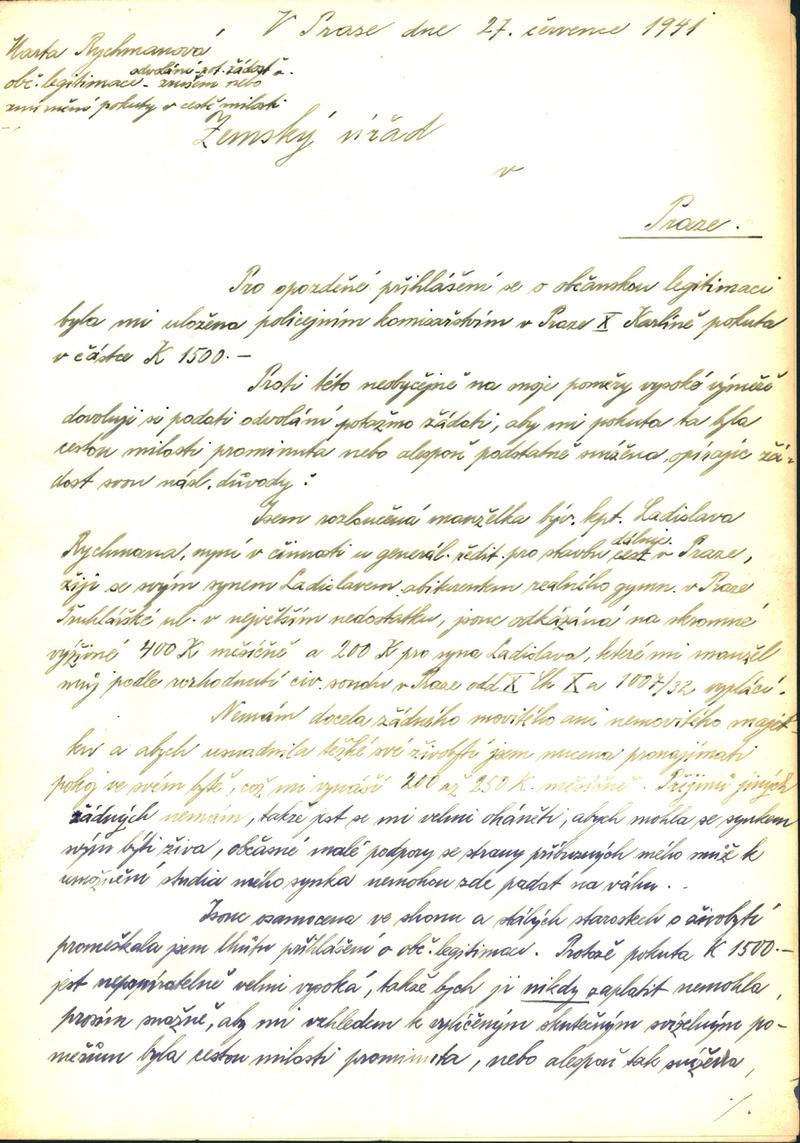 V Praze dne 27. července 1941
Marta Rychmanová
odvolání pot. žádost o
obč. legitimaci - snížení nebo
zmírnění pokuty v cestě milosti
Zemský úřad
v
Praze.
Pro opozděné přihlášení se o občanskou legitimaci
byla mi uložena policejním komisařstvím v Praze X Karlíně pokuta
v částce K 1500.-
Proti této neobyčejně na moje poměry vysoké výměře
dovoluji si podati odvolání potažmo žádati, aby mi pokuta ta byla
cestou milosti prominuta nebo alespoň podstatně snížena opírajíc žá-
dost svou násl. důvody:
Jsem rozloučená manželka býv. kpt. Ladislava
Rychmana, nyní v činnosti u generál. ředit. pro stavbu dálnic. cest v Praze,
žiji se svým synem Ladislavem abiturentem reálného gymn. v Praze
Truhlářská ul. v největším nedostatku, jsouc odkázána na skromné
výživné 400 K měsíčně a 200 K pro syna Ladislava, které mi manžel
můj podle rozhodnutí civ. soudu v Praze odd X Ck X a 1007/32 vyplácí.
Nemám docela žádného movitého ani nemovitého majet-
ku a abych usnadnila těžké své živobytí jsem nucena pronajímati
pokoj ve svém bytě, což mi vynáší 200 až 250 K. měsíčně. Příjmů jiných
žádných nemám, takže jest se mi velmi oháněti, abych mohla se synkem
svým býti živa, občasné malé podpory se strany příbuzných mého muže k
umožnění studia mého synka nemohou zde padat na váhu..
Jsouc osamocena ve shonu a stálých starostech o živobytí
promeškala jsem lhůtu přihlášení o obč. legitimaci. Protože pokuta K 1500.-
jest nepoměrně velmi vysoká, takže bych ji nikdy zaplatit nemohla,
prosím snažně, aby mi vzhledem k vylíčeným skutečným svízelným po-
měrům byla cestou milosti prominuta, nebo alespoň tak snížena,
./.